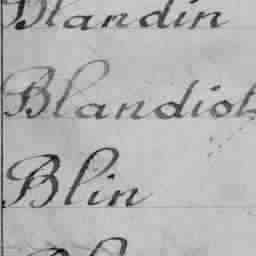 Blandin
Blandiot
Blin